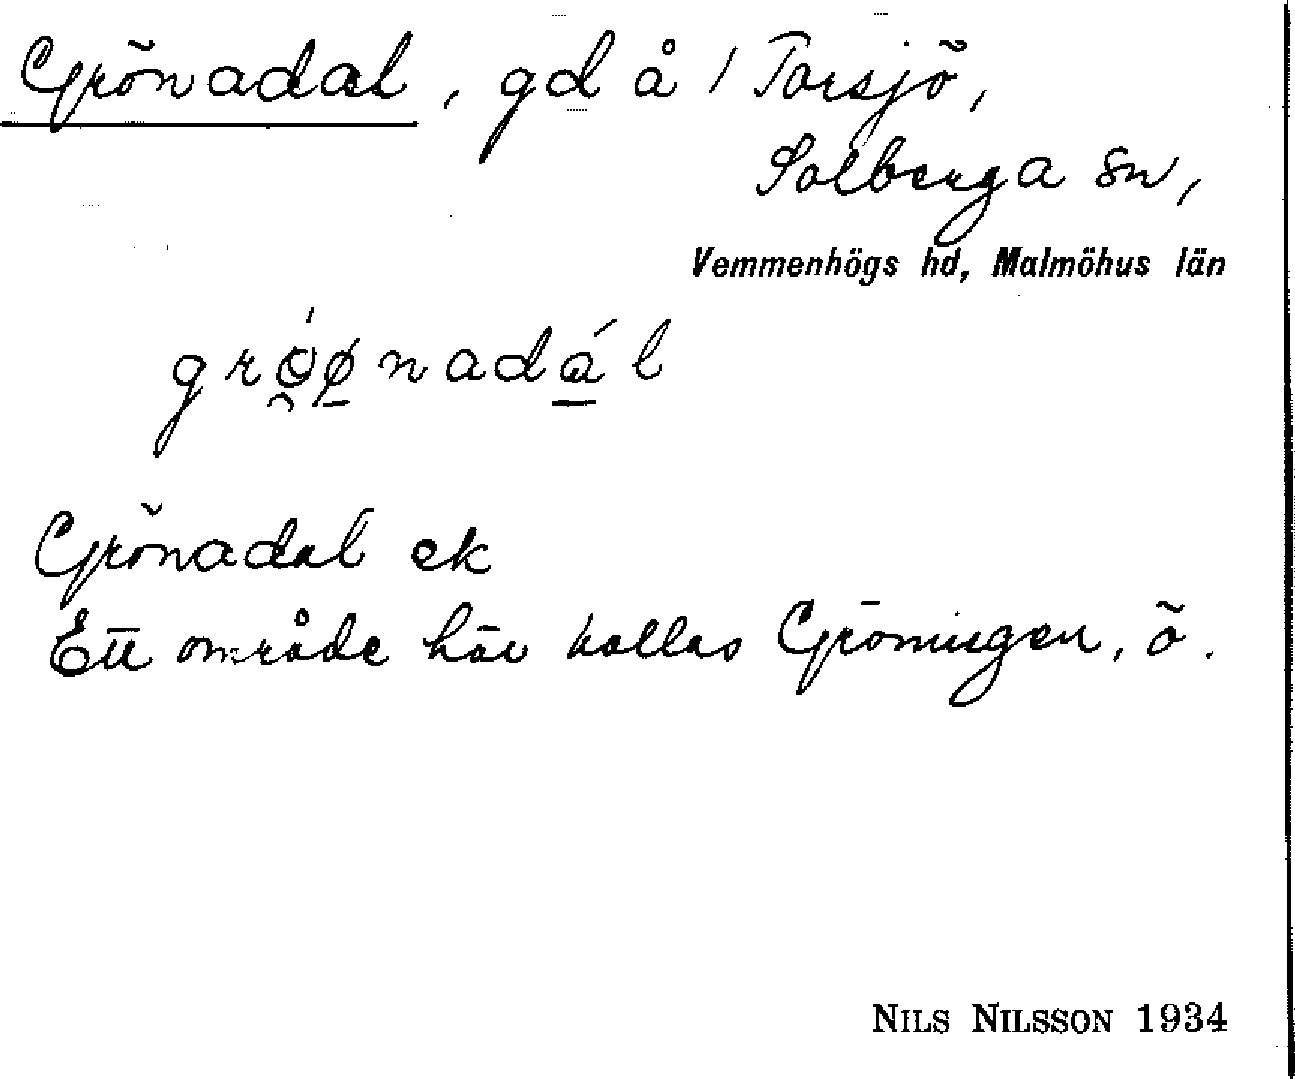 Grönadal, gd å 1 Torsjö,
Solberga sn,
Vemmenhögs hd, Malmöhus län
gro̯ø̱nadá̱l
Grönadal ek
Ett område här kallas Gröningen, ö.
NILS NILSSON 1934